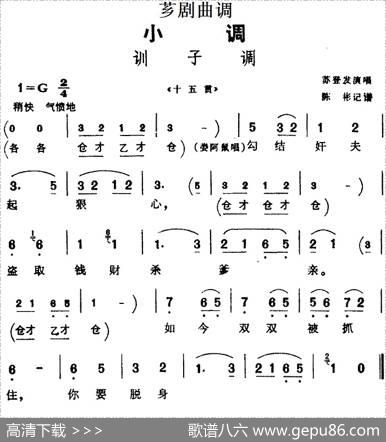 芗剧曲调
小 调
训 子 调
1=G 2/4
《十五贯》
苏登发演唱
陈 彬记谱
稍快 气愤地
(0 0 3 2 1 2 3 -) 5 3 2 1 2
(各 各 仓才 乙才 仓)(娄阿鼠唱)勾 结 奸 夫
3. 5 3 2 1 2 3. (3 2 1 2 3 -)
起 狠 心, (仓才 仓才 仓)
6 6. 1 1 1. 3 2 1 6 5 2 1 (3
盗 取 钱 财 杀 爹 亲。
2 1 6 5 1 -) 7 6 5 7 6 5 5 6 7 2
(仓才 乙才 仓) 如 今 双 双 被 抓
6 - 6 5 3 2 1. 3 2 1 0
住, 你 要 脱 身
高清下载 >>>
歌谱八六 www.gepu86.com